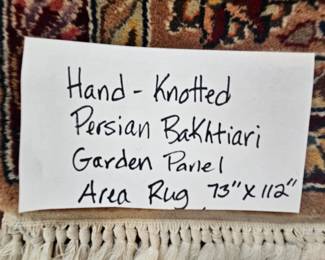 Hand-Knotted
Persian Bakhtiari
Garden Panel
Area Rug 73" X 112"